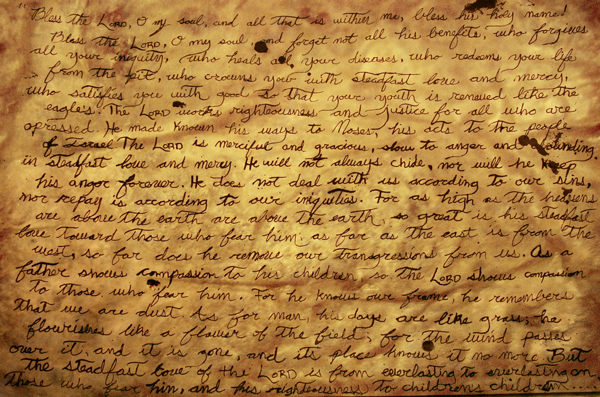 "Bless the LORD, O my soul, and all that is within me, bless his holy name!
Bless the LORD, O my soul, and forget not all his benefits, who forgives
all your iniquity, who heals all your diseases, who redeems your life
from the pit, who crowns you with steadfast love and mercy,
who satisfies you with good so that your youth is renewed like the
eagles. The LORD works righteousness and justice for all who are
opressed. He made known his ways to Moses, his acts to the people
of Israel The LORD is merciful and gracious, slow to anger and
in steadfast love and mercy. He will not always chide, nor will he keep
his anger forever. He does not deal with us according to our sins,
nor repay is according to our iniquities. For as high as the heavens
are above the earth are above the earth, so great is his steadfast
love toward those who fear him. as far as the east is from the
west, so far does he remove our transgressions from us. As a
father shows compassion to his children so the LORD shows compassion
to those who fear him. For he knows our frame, he remembers
that we are dust As for man, his days are like grass; he
flourishes like a flower of the field; for the wind passes
over it, and it is gone, and its place knows it no more But
the steadfast love of the LORD is from everlasting to everlasting on
those who fear him, and his righteousness to children's children.....